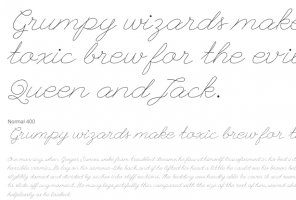 Grumpy wizards make
toxic brew for the evil
Queen and Jack.
Normal 400
Grumpy wizards make toxic brew for t
One morning, when Gregor Samsa woke from troubled dreams, he found himself transformed in his bed into a
horrible vermin. He lay on his armour-like back, and if he lifted his head a little he could see his brown belly,
slightly domed and divided by arches into stiff sections. The bedding was hardly able to cover it and seemed ready
to slide off any moment. His many legs, pitifully thin compared with the size of the rest of him, waved about
helplessly as he looked.